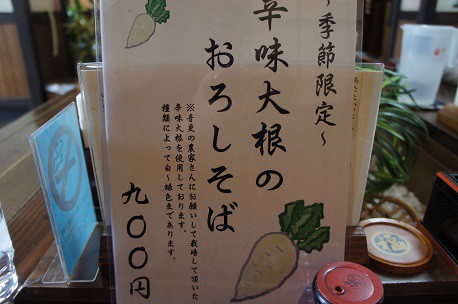 ～季節限定～
辛味大根の
おろしそば
※音更の農家さんにお願いして栽培して頂いた
辛味大根を使用しております。
種類によって白～緑色まであります。
九〇〇円